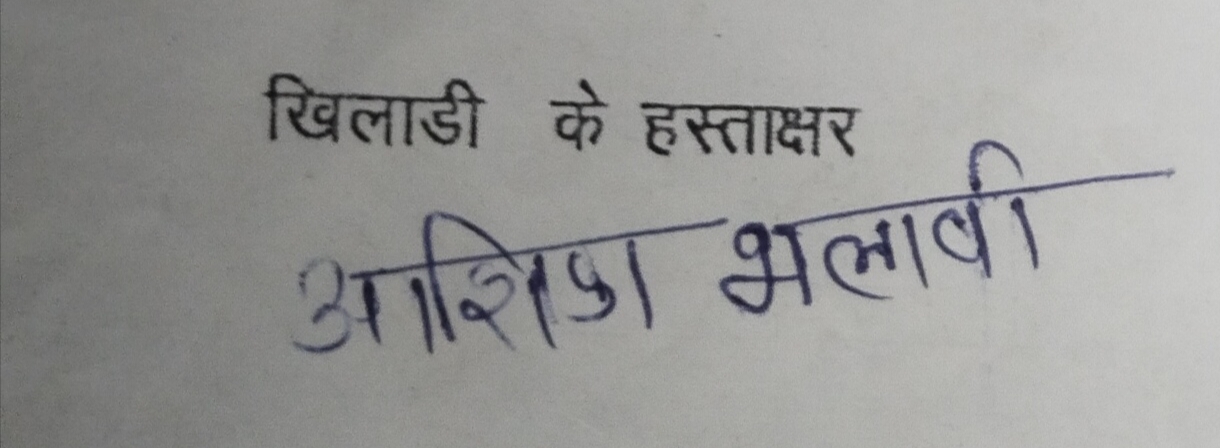 खिलाडी के हस्ताक्षर
आशिष भलावी